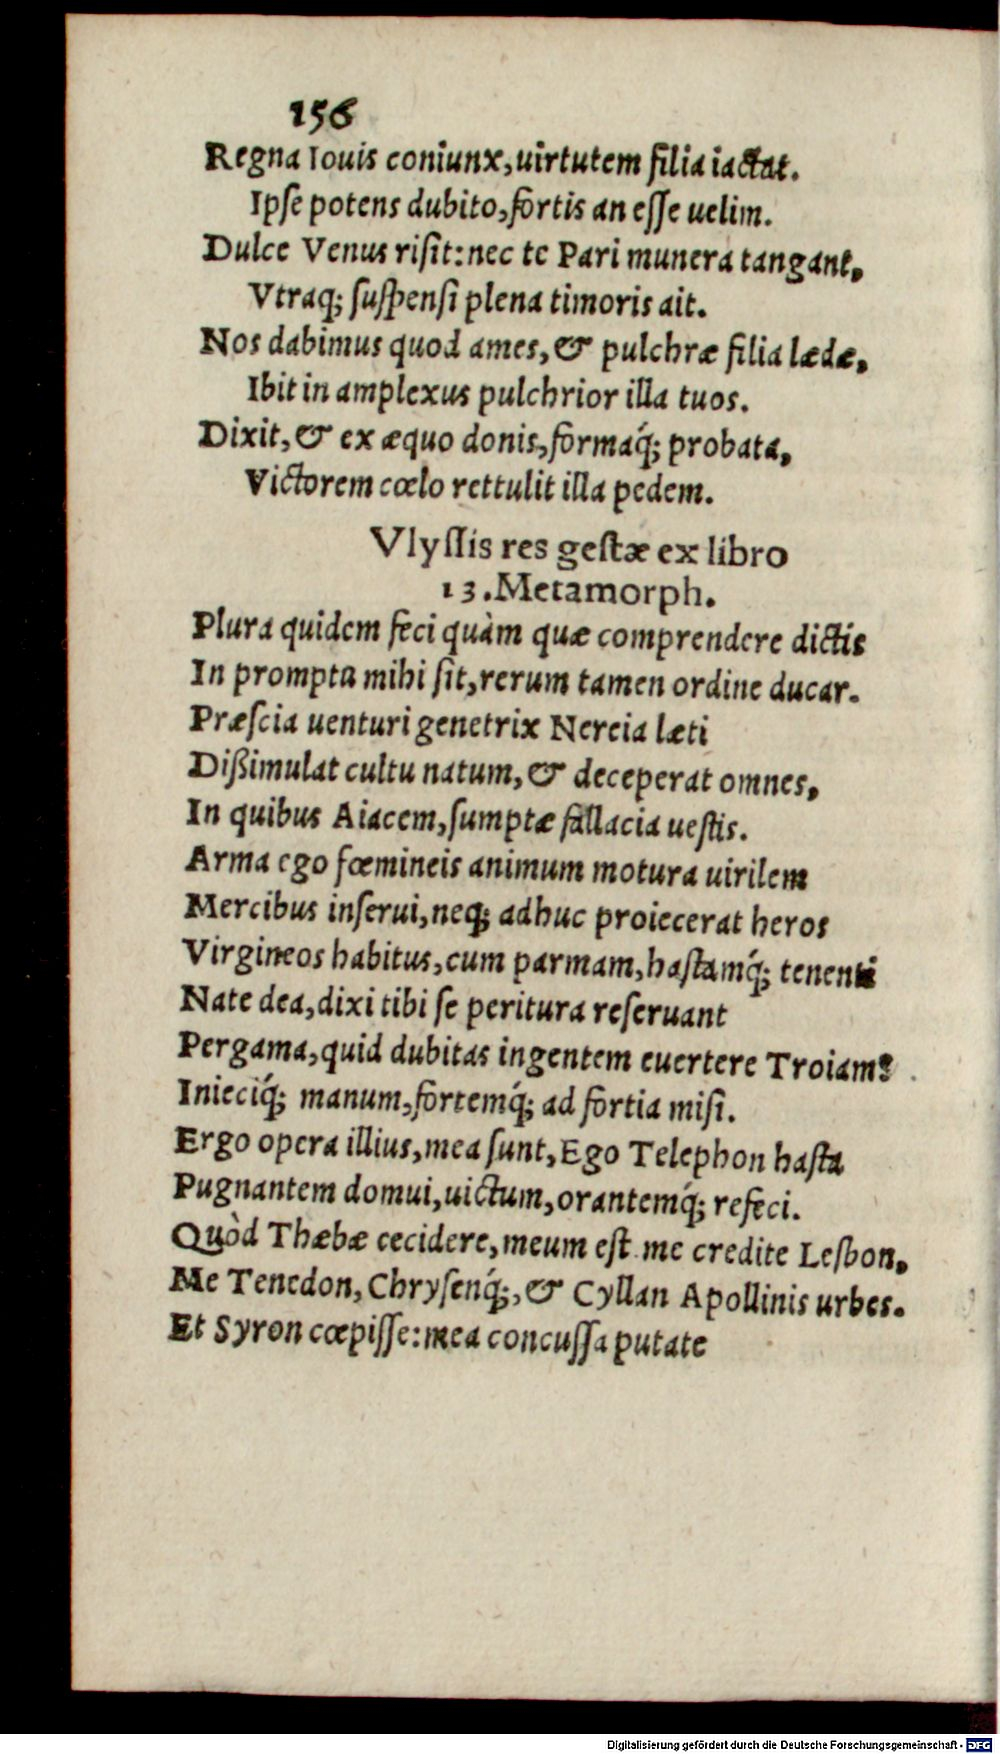 156
Regna Iouis coniunx, uirtutem filia iactat.
Ipſe potens dubito, fortis an eſſe uelim.
Dulce Venus riſit: nec te Pari munera tangant,
Vtraq; ſuſpenſi plena timoris ait.
Nos dabimus quod ames, & pulchræ filia lædæ,
Ibit in amplexus pulchrior illa tuos.
Dixit, & ex æquo donis, formaq́; probata,
Victorem cœlo rettulit illa pedem.
Vlyſſis res geſtæ ex libro
13. Metamorph.
Plura quidem feci quàm quæ comprendere dictis
In prompta mihi ſit, rerum tamen ordine ducar.
Præſcia uenturi genetrix Nereia læti
Dißimulat cultu natum, & deceperat omnes,
In quibus Aiacem, ſumptæ fallacia ueſtis.
Arma ego fœmineis animum motura uirilem
Mercibus inſerui, neq; adhuc proiecerat heros
Virgineos habitus, cum parmam, haſtamq́; tenenti
Nate dea, dixi tibi ſe peritura reſeruant
Pergama, quid dubitas ingentem euertere Troiam?
Inieciq́; manum, fortemq́; ad fortia miſi.
Ergo opera illius, mea ſunt, Ego Telephon haſta
Pugnantem domui, uictum, orantemq́; refeci.
Quòd Thæbæ cecidere, meum eſt me credite Leſbon,
Me Tenedon, Chryſenq́;, & Cyllan Apollinis urbes.
Et Syron cœpiſſe: mea concuſſa putate
Digitalisierung gefördert durch die Deutsche Forschungsgemeinschaft - DFG